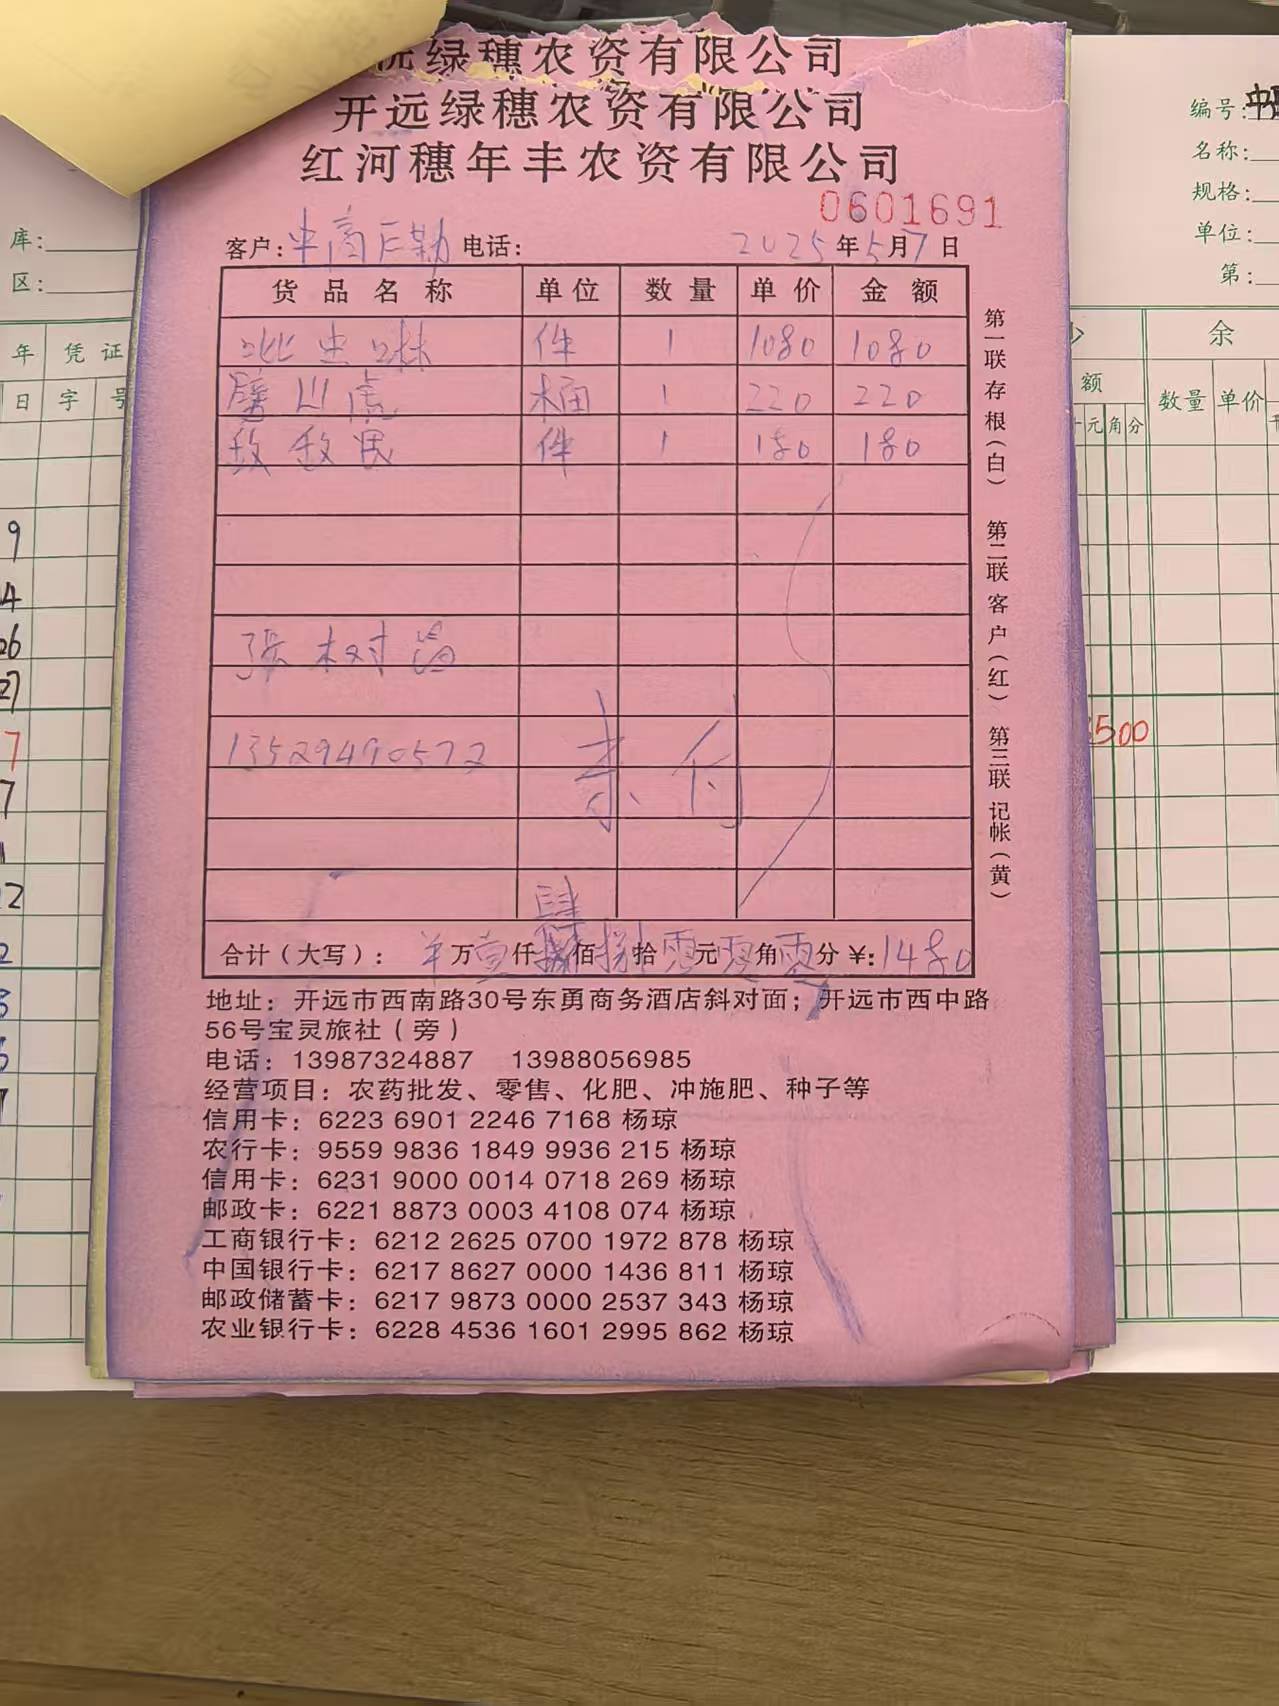 绿穗农资有限公司
开远绿穗农资有限公司
红河穗年丰农资有限公司
0601691
客户: 电话: 2025年5月7日
货品名称 单位 数量 单价 金额
吡虫啉 件 1 1080 1080
壁山虎 桶 1 220 220
敌敌畏 件 1 180 180
張树
13529490572
未付
合计(大写): 万壹仟肆佰捌拾零元零角零分 ¥:1480
地址：开远市西南路30号东勇商务酒店斜对面；开远市西中路
56号宝灵旅社(旁)
电话：13987324887 13988056985
经营项目：农药批发、零售、化肥、冲施肥、种子等
信用卡：6223 6901 2246 7168 杨琼
农行卡：9559 9836 1849 9936 215 杨琼
信用卡：6231 9000 0014 0718 269 杨琼
邮政卡：6221 8873 0003 4108 074 杨琼
工商银行卡：6212 2625 0700 1972 878 杨琼
中国银行卡：6217 8627 0000 1436 811 杨琼
邮政储蓄卡：6217 9873 0000 2537 343 杨琼
农业银行卡：6228 4536 1601 2995 862 杨琼
第一联存根(白) 第二联客户(红) 第三联记帐(黄)
库:
区:
年 凭证
日 字 号
9
26
27
7
7
编号:
名称:
规格:
单位:
第:
余
额
数量 单价
元角分
500